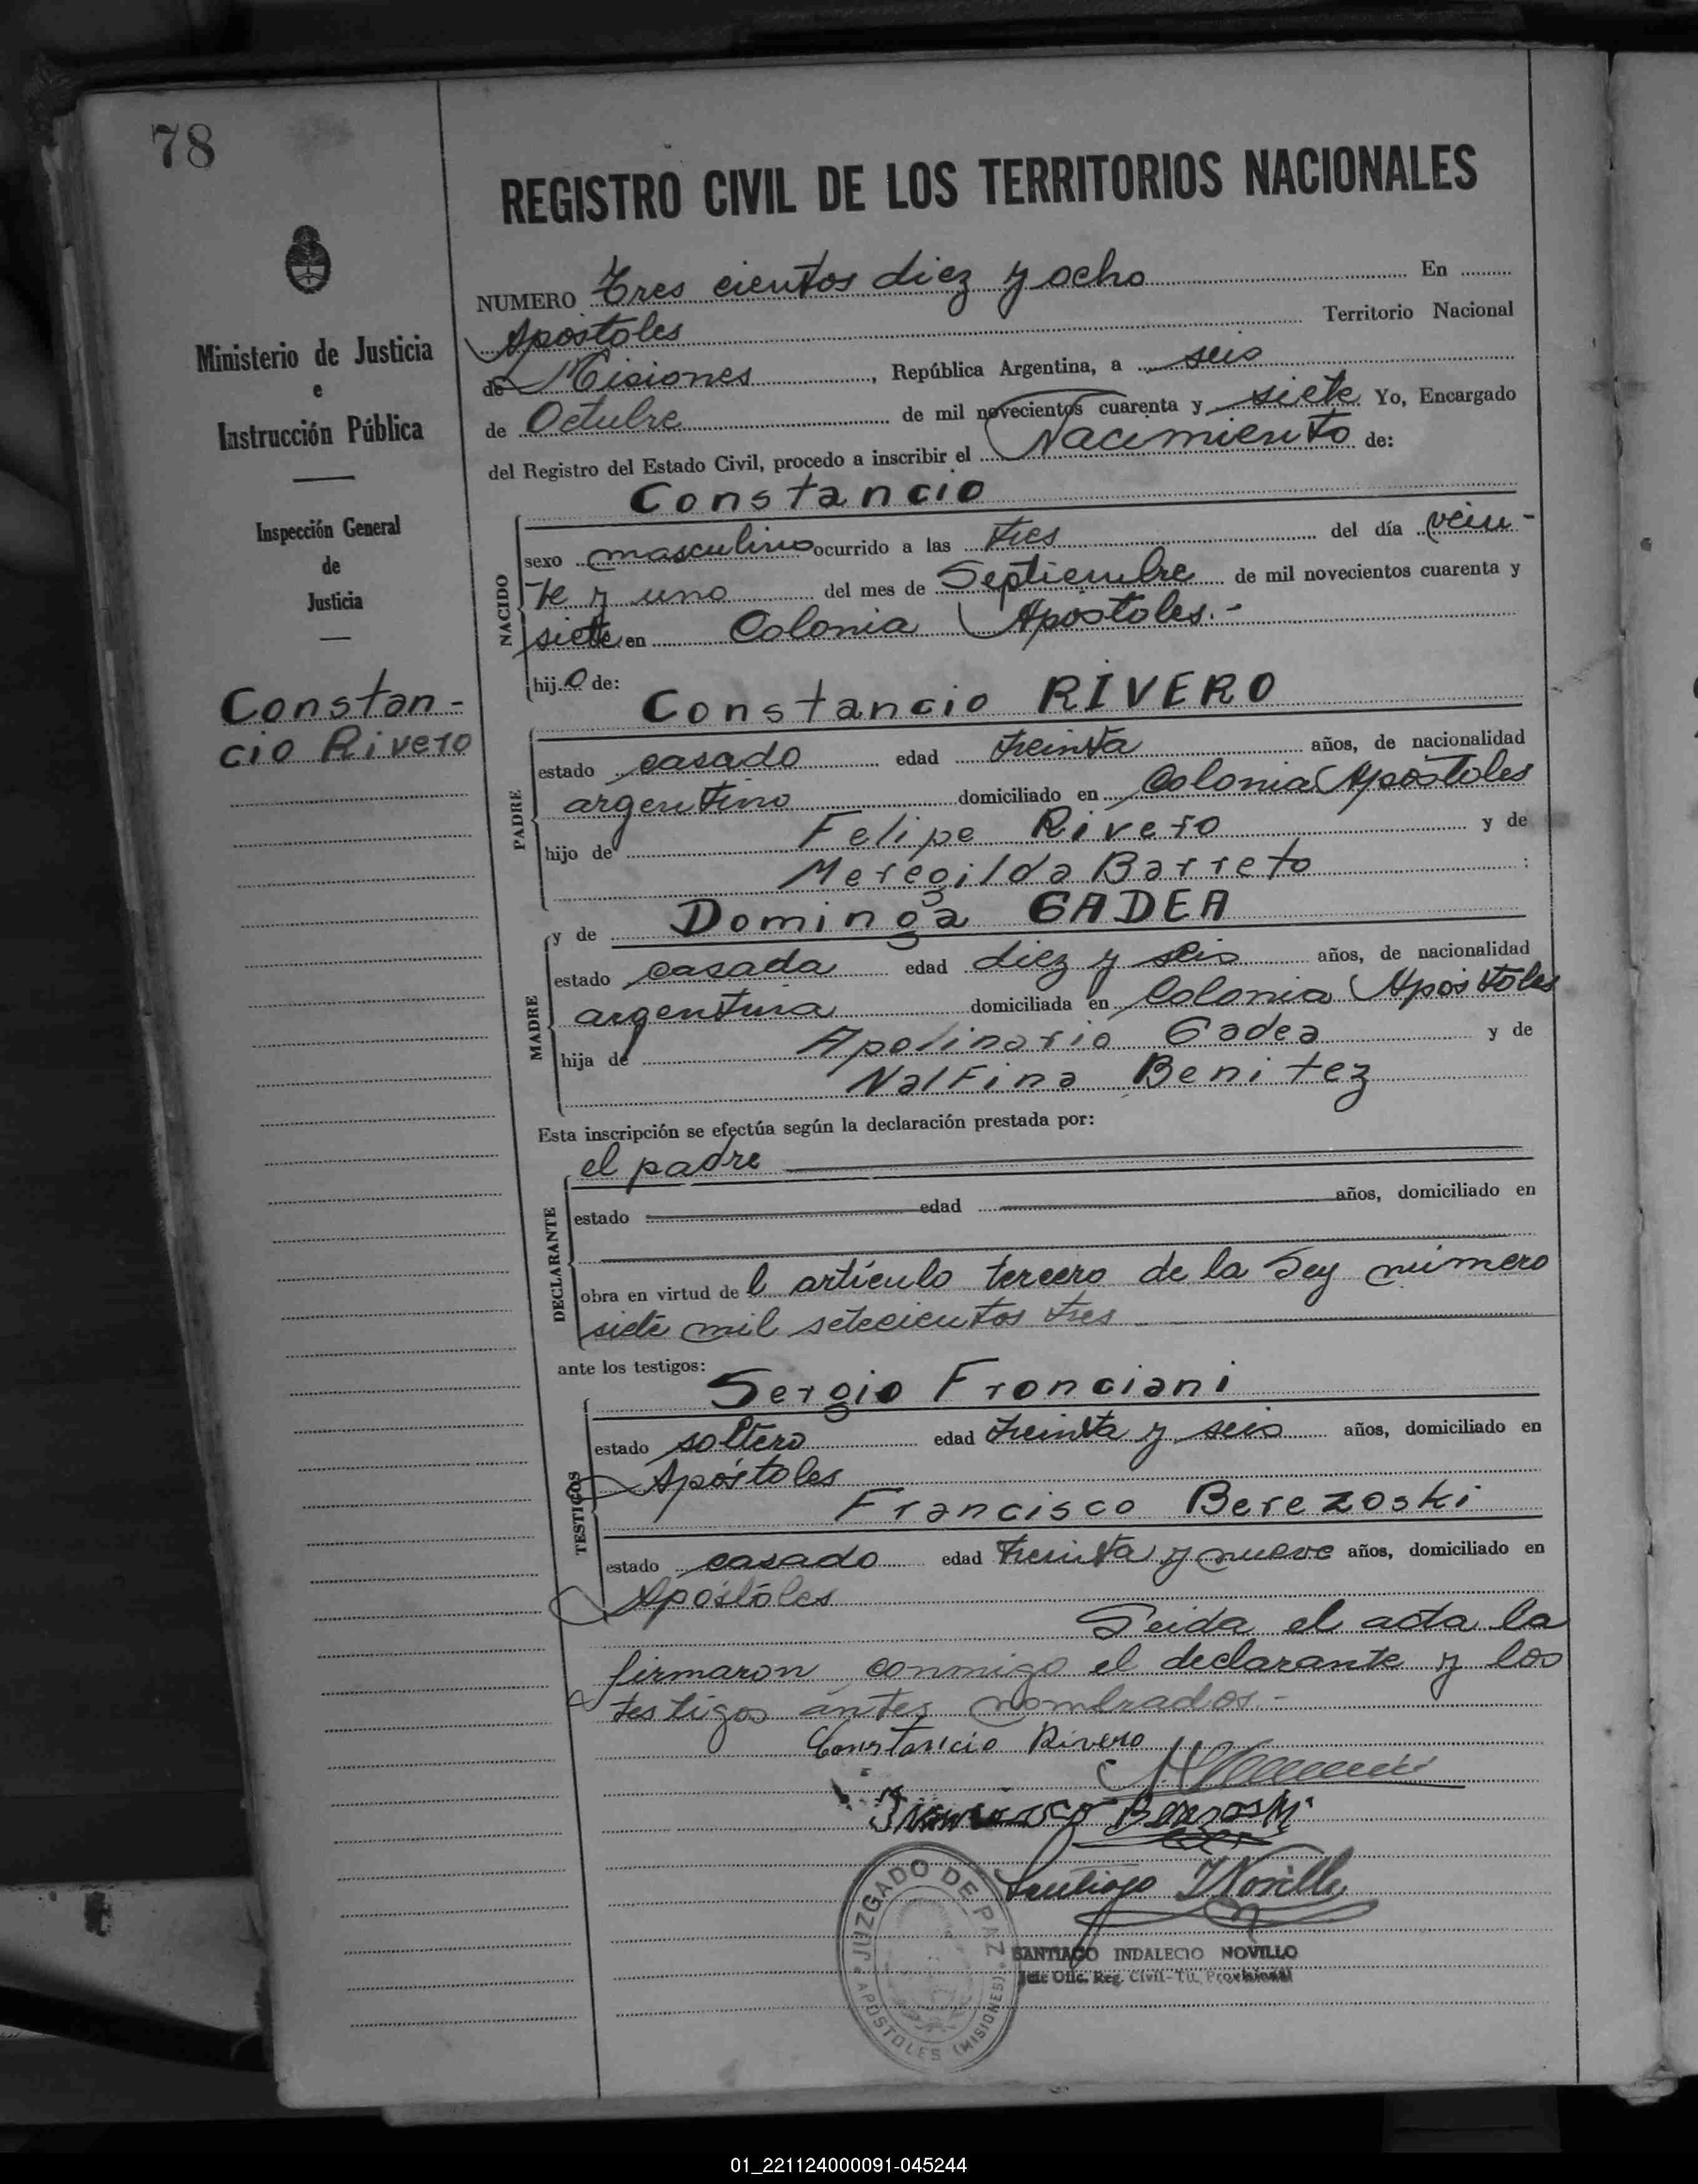 78
REGISTRO CIVIL DE LOS TERRITORIOS NACIONALES
Ministerio de Justicia
e
Instrucción Pública
Inspección General
de
Justicia
Constan-
cio Rivero
NUMERO Tres cientos diez y ocho En
Apóstoles Territorio Nacional
de Misiones, República Argentina, a seis
de Octubre de mil novecientos cuarenta y siete Yo, Encargado
del Registro del Estado Civil, procedo a inscribir el Nacimiento de:
Constancio
NACIDO
sexo masculino ocurrido a las tres del día vein-
te y uno del mes de Septiembre de mil novecientos cuarenta y
siete en Colonia Apóstoles.-
hijo de:
Constancio RIVERO
PADRE
estado casado edad treinta años, de nacionalidad
argentino domiciliado en Colonia Apóstoles
hijo de Felipe Rivero y de
Meregilda Barreto :
y de Dominga GADEA
MADRE
estado casada edad diez y seis años, de nacionalidad
argentina domiciliada en Colonia Apóstoles
hija de Apolinario Gadea y de
Nalfina Benitez
Esta inscripción se efectúa según la declaración prestada por:
el padre
DECLARANTE
estado edad años, domiciliado en
obra en virtud del artículo tercero de la Ley número
siete mil setecientos tres
ante los testigos:
Sergio Fronciani
TESTIGOS
estado soltero edad treinta y seis años, domiciliado en
Apóstoles
Francisco Berezoski
estado casado edad treinta y nueve años, domiciliado en
Apóstoles
Leida el acta la
firmaron conmigo el declarante y los
testigos antes nombrados.-
Constancio Rivero
Francisco Berezoski
Santiago I Novillo
JUZGADO DE PAZ
APOSTOLES (MISIONES)
SANTIAGO INDALECIO NOVILLO
Jefe Ofic. Reg. Civil-Tit. Provisional
01_221124000091-045244